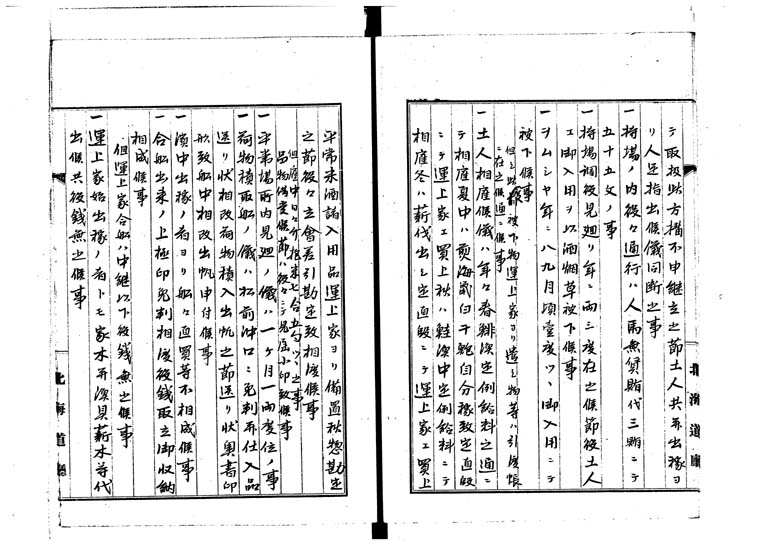 テ取扱此方揩不申継立之節土人共再出稼ヨ
リ人足指出候儀同断之事
一持場ノ内役々通行ハ人馬無賃賄代三賄ニテ
五十五文ノ事
一持場調役見廻リ年ニ両三度在之候節役土人
エ御入用ヲ以酒烟草被下候事
一ヲムシヤ年ニ八九月頃壹度ツヽ御入用ニテ
被下候事
但シ此被下物運上家ヨリ遣シ物等ハ引渡帳
ニ在之候通ニ候事
一土人相雇候儀ハ年々春鯡漁定例給料之通ニ
テ相雇夏中ハ煎海鼠白干鮑自分稼致定直段
ニテ運上家エ買上秋ハ鮭漁中定例給料ニテ
相雇冬ハ薪伐出シ定直段ニテ運上家エ買上
北海道廳
平常米酒諸入用品運上家ヨリ備置秋惣勘定
之節役々立會差引勘定致相渡候事
但雇中日々介抱米七合五勺ツヽ之事
品物偽賣候節ハ役々ニテ見届小印致候事
一平常場所内見廻ノ儀ハ一ケ月一両度位ノ事
一荷物積取船ノ儀ハ松前沖口ニ免判并仕入品
送リ状相改荷物積入出帆之節送リ状奥書印
形致船中相改出帆申付候事
一漁中出稼ノ者ヨリ船々直買等不相成候事
一合船出来ノ上極印免判相渡役銭取立御収納
相成候事
但運上家合船ハ中継以下役銭無之候事
一運上家始出稼ノ者トモ家木并漁具薪木等伐
出候共役銭無之候事
北海道廳